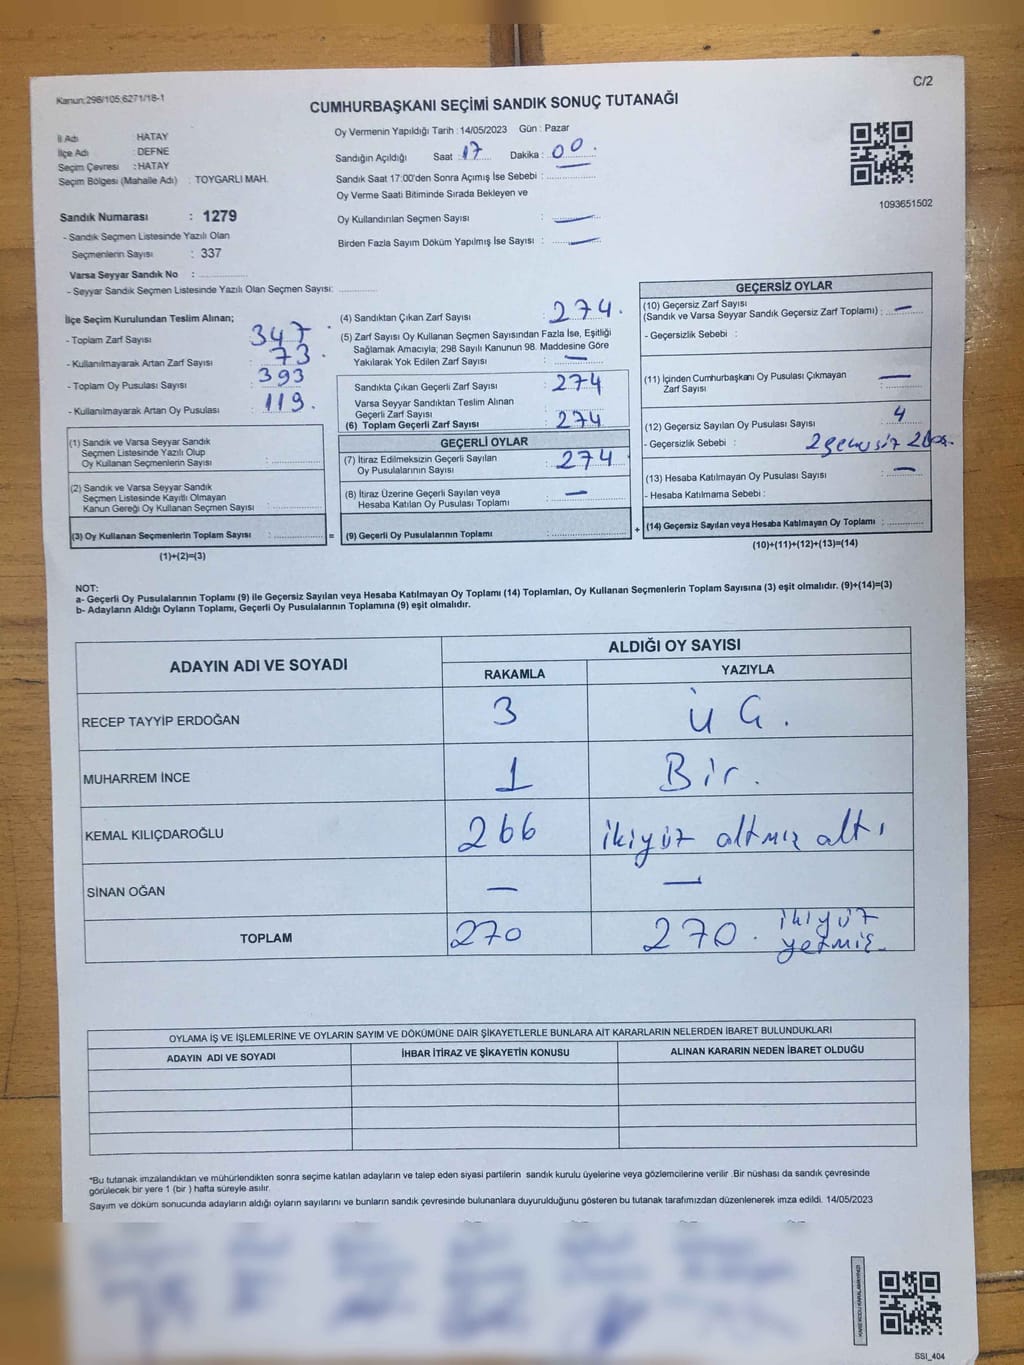 Kanun:298/105,6271/18-1
C/2
CUMHURBAŞKANI SEÇİMİ SANDIK SONUÇ TUTANAĞI
İl Adı : HATAY
İlçe Adı : DEFNE
Seçim Çevresi : HATAY
Seçim Bölgesi (Mahalle Adı) : TOYGARLI MAH.
Sandık Numarası : 1279
- Sandık Seçmen Listesinde Yazılı Olan
Seçmenlerin Sayısı : 337
Varsa Seyyar Sandık No : ............
- Seyyar Sandık Seçmen Listesinde Yazılı Olan Seçmen Sayısı: ............
Oy Vermenin Yapıldığı Tarih : 14/05/2023 Gün : Pazar
Sandığın Açıldığı Saat : 17 Dakika : 00.
Sandık Saat 17:00'den Sonra Açımış İse Sebebi : ............
Oy Verme Saati Bitiminde Sırada Bekleyen ve
Oy Kullandırılan Seçmen Sayısı : —
Birden Fazla Sayım Döküm Yapılmış İse Sayısı : —
1093651502
İlçe Seçim Kurulundan Teslim Alınan;
- Toplam Zarf Sayısı : 347
- Kullanılmayarak Artan Zarf Sayısı : 73.
- Toplam Oy Pusulası Sayısı : 393
- Kullanılmayarak Artan Oy Pusulası : 119.
(1) Sandık ve Varsa Seyyar Sandık
Seçmen Listesinde Yazılı Olup
Oy Kullanan Seçmenlerin Sayısı : ............
(2) Sandık ve Varsa Seyyar Sandık
Seçmen Listesinde Kayıtlı Olmayan
Kanun Gereği Oy Kullanan Seçmen Sayısı : ............
(3) Oy Kullanan Seçmenlerin Toplam Sayısı : ............ =
(1)+(2)=(3)
(4) Sandıktan Çıkan Zarf Sayısı : 274.
(5) Zarf Sayısı Oy Kullanan Seçmen Sayısından Fazla İse, Eşitliği
Sağlamak Amacıyla; 298 Sayılı Kanunun 98. Maddesine Göre
Yakılarak Yok Edilen Zarf Sayısı : —
Sandıkta Çıkan Geçerli Zarf Sayısı : 274
Varsa Seyyar Sandıktan Teslim Alınan
Geçerli Zarf Sayısı : ............
(6) Toplam Geçerli Zarf Sayısı : 274
GEÇERLİ OYLAR
(7) İtiraz Edilmeksizin Geçerli Sayılan
Oy Pusulalarının Sayısı : 274
(8) İtiraz Üzerine Geçerli Sayılan veya
Hesaba Katılan Oy Pusulası Toplamı : —
(9) Geçerli Oy Pusulalarının Toplamı : ............ +
GEÇERSİZ OYLAR
(10) Geçersiz Zarf Sayısı
(Sandık ve Varsa Seyyar Sandık Geçersiz Zarf Toplamı) : —
- Geçersizlik Sebebi :
(11) İçinden Cumhurbaşkanı Oy Pusulası Çıkmayan
Zarf Sayısı : —
(12) Geçersiz Sayılan Oy Pusulası Sayısı : 4
- Geçersizlik Sebebi : 2 geçersiz 2 boş.
(13) Hesaba Katılmayan Oy Pusulası Sayısı : —
- Hesaba Katılmama Sebebi :
(14) Geçersiz Sayılan veya Hesaba Katılmayan Oy Toplamı : ............
(10)+(11)+(12)+(13)=(14)
NOT:
a- Geçerli Oy Pusulalarının Toplamı (9) ile Geçersiz Sayılan veya Hesaba Katılmayan Oy Toplamı (14) Toplamları, Oy Kullanan Seçmenlerin Toplam Sayısına (3) eşit olmalıdır. (9)+(14)=(3)
b- Adayların Aldığı Oyların Toplamı, Geçerli Oy Pusulalarının Toplamına (9) eşit olmalıdır.
ADAYIN ADI VE SOYADI ALDIĞI OY SAYISI
RAKAMLA YAZIYLA
RECEP TAYYİP ERDOĞAN 3 ÜÇ.
MUHARREM İNCE 1 Bir.
KEMAL KILIÇDAROĞLU 266 ikiyüz altmış altı
SİNAN OĞAN — —
TOPLAM 270 270. ikiyüz
yetmiş
OYLAMA İŞ VE İŞLEMLERİNE VE OYLARIN SAYIM VE DÖKÜMÜNE DAİR ŞİKAYETLERLE BUNLARA AİT KARARLARIN NELERDEN İBARET BULUNDUKLARI
ADAYIN ADI VE SOYADI İHBAR İTİRAZ VE ŞİKAYETİN KONUSU ALINAN KARARIN NEDEN İBARET OLDUĞU
*Bu tutanak imzalandıktan ve mühürlendikten sonra seçime katılan adayların ve talep eden siyasi partilerin sandık kurulu üyelerine veya gözlemcilerine verilir .Bir nüshası da sandık çevresinde
görülecek bir yere 1 (bir ) hafta süreyle asılır.
Sayım ve döküm sonucunda adayların aldığı oyların sayılarını ve bunların sandık çevresinde bulunanlara duyurulduğunu gösteren bu tutanak tarafımızdan düzenlenerek imza edildi. 14/05/2023
SSI_404